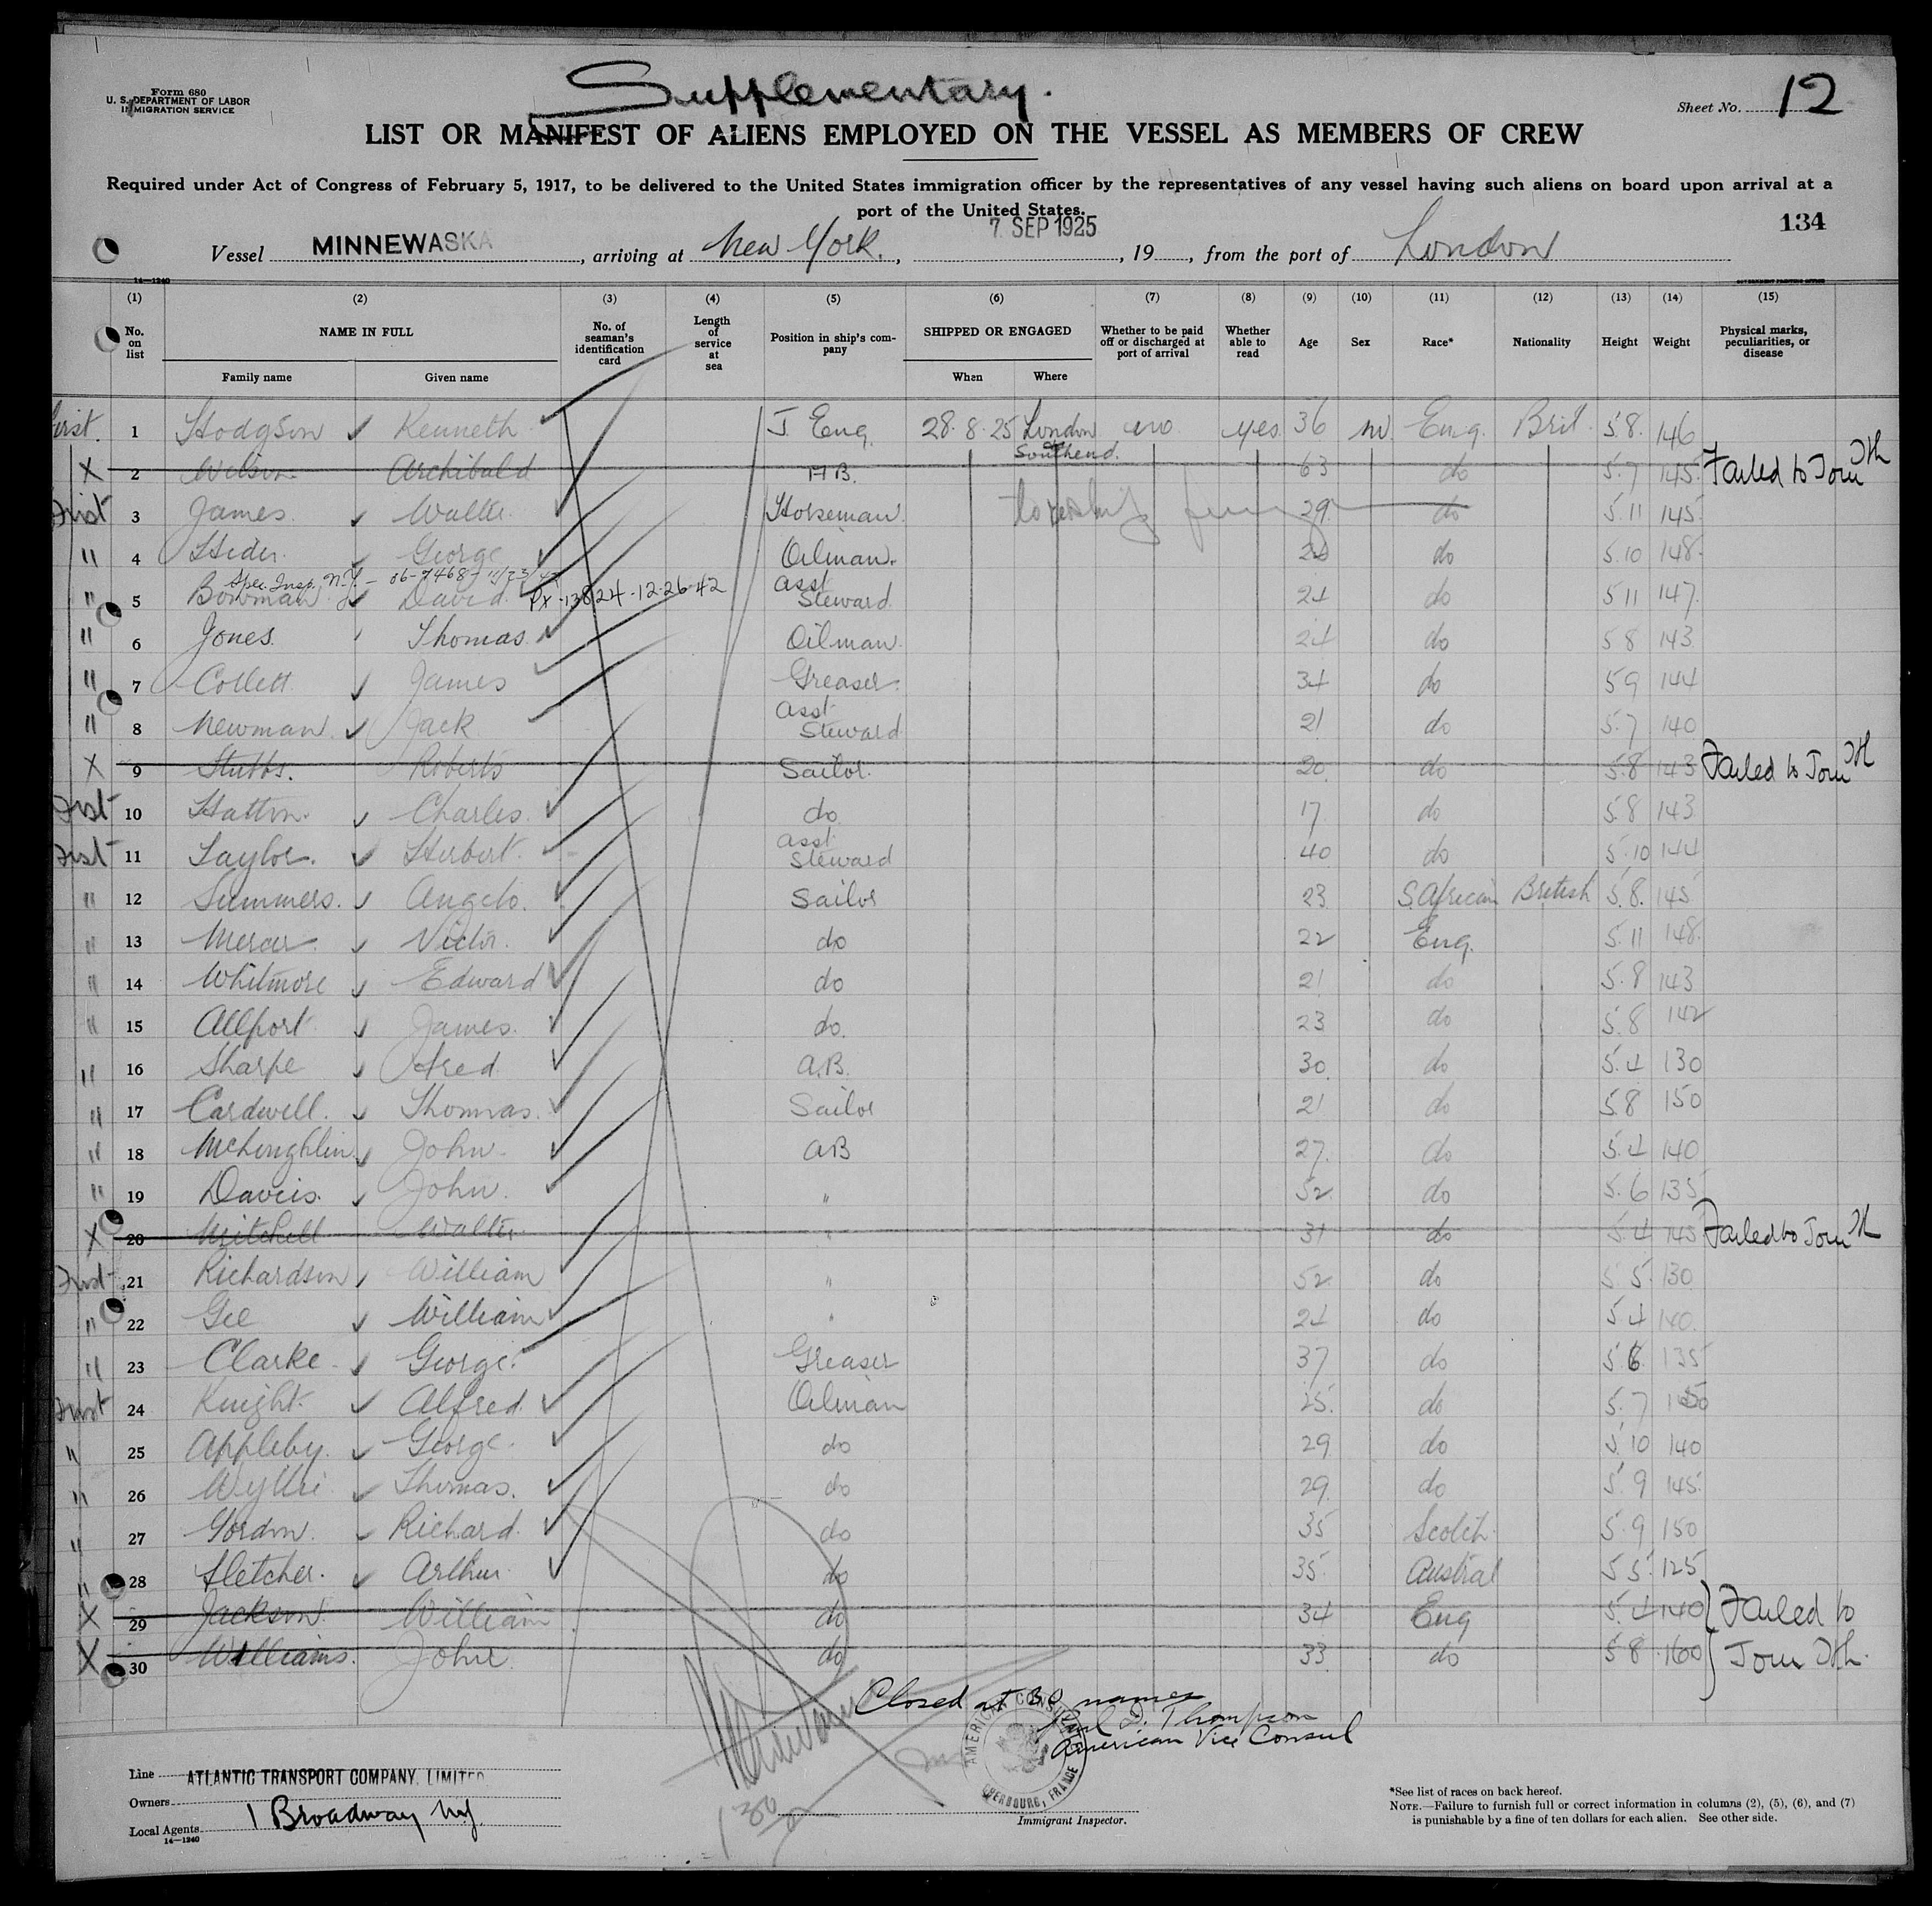 Supplementary.
Form 680
U. S. DEPARTMENT OF LABOR
IMMIGRATION SERVICE
Sheet No. 12
LIST OR MANIFEST OF ALIENS EMPLOYED ON THE VESSEL AS MEMBERS OF CREW
Required under Act of Congress of February 5, 1917, to be delivered to the United States immigration officer by the representatives of any vessel having such aliens on board upon arrival at a
port of the United States.
7 SEP 1925
134
Vessel MINNEWASKA, arriving at New York., , 19 , from the port of London
14—1240 GOVERNMENT PRINTING OFFICE
(1) (2) (3) (4) (5) (6) (7) (8) (9) (10) (11) (12) (13) (14) (15)
No. on list NAME IN FULL No. of seaman's identification card Length of service at sea Position in ship's company SHIPPED OR ENGAGED Whether to be paid off or discharged at port of arrival Whether able to read Age Sex Race* Nationality Height Weight Physical marks, peculiarities, or disease
Family name Given name When Where
First. 1 Hodgson Kenneth J. Eng. 28.8.25 London no yes 36 m. Eng. Brit. 5.8. 146
Southend.
X 2 Wilson Archibald A.B. 63 do 5.7 145 Failed to Join
First 3 James Walter Horseman 29 do 5.11 145
" 4 Heder George Oilman. 24 do 5.10 148
Spec. Insp. N.Y.
" 5 Bowman David PX-13824-12-26-42 Asst Steward 24 do 5 11 147
" 6 Jones Thomas Oilman 24 do 5 8 143
" 7 Collett James Greaser 34 do 5 9 144
" 8 Newman Jack Asst Steward 21 do 5.7 140
X 9 Stubbs. Roberts Sailor. 20 do 5.8 143 Failed to Join
First 10 Hatton. Charles. do 17 do 5.8 143
First 11 Taylor. Herbert. Asst Steward 40 do 5.10 144
" 12 Summers. Angelo. Sailor 23 S.African British 5.8. 145
" 13 Mercer Victor. do 22 Eng. 5.11 148
" 14 Whitmore Edward do 21 do 5.8 143
" 15 Allport James. do. 23 do 5.8 142
" 16 Sharpe Fred A.B. 30 do 5.4 130
" 17 Cardwell. Thomas. Sailor 21 do 5.8 150
" 18 McLoughlin John AB 27. do 5.4 140
" 19 Davies. John. " 52 do 5.6 135
X 20 Mitchell Walter " 31 do 5.4 145 Failed to Join
First 21 Richardson William " 52 do 5 5. 130
" 22 Gee William " 24 do 5.4 140.
" 23 Clarke George. Greaser 37 do 5 6 135
First 24 Knight Alfred Oilman 25. do 5.7
" 25 Appleby. George. do 29 do 5.10 140
" 26 Wyllie Thomas. do 29. do 5.9 145
" 27 Gordon. Richard. do 35 Scotch 5.9 150
" 28 Fletcher. Arthur. do 35. Austral 5 5. 125
X 29 Jackson William do 34 Eng 5.4 140 Failed to
X 30 Williams. John do 33 do 5 8 160 Join
Closed at 30 names
Paul D. Thompson
American Vice Consul
AMERICAN CONSULATE
CHERBOURG, FRANCE
Line ATLANTIC TRANSPORT COMPANY, LIMITED
Owners
Local Agents 1 Broadway NY.
14—1240
Immigrant Inspector.
*See list of races on back hereof.
NOTE.—Failure to furnish full or correct information in columns (2), (5), (6), and (7)
is punishable by a fine of ten dollars for each alien. See other side.